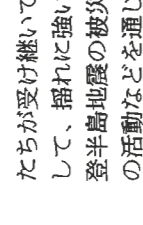 たちが受け継いで
して、揺れに強い
登半島地震の被災
の活動などを通じ